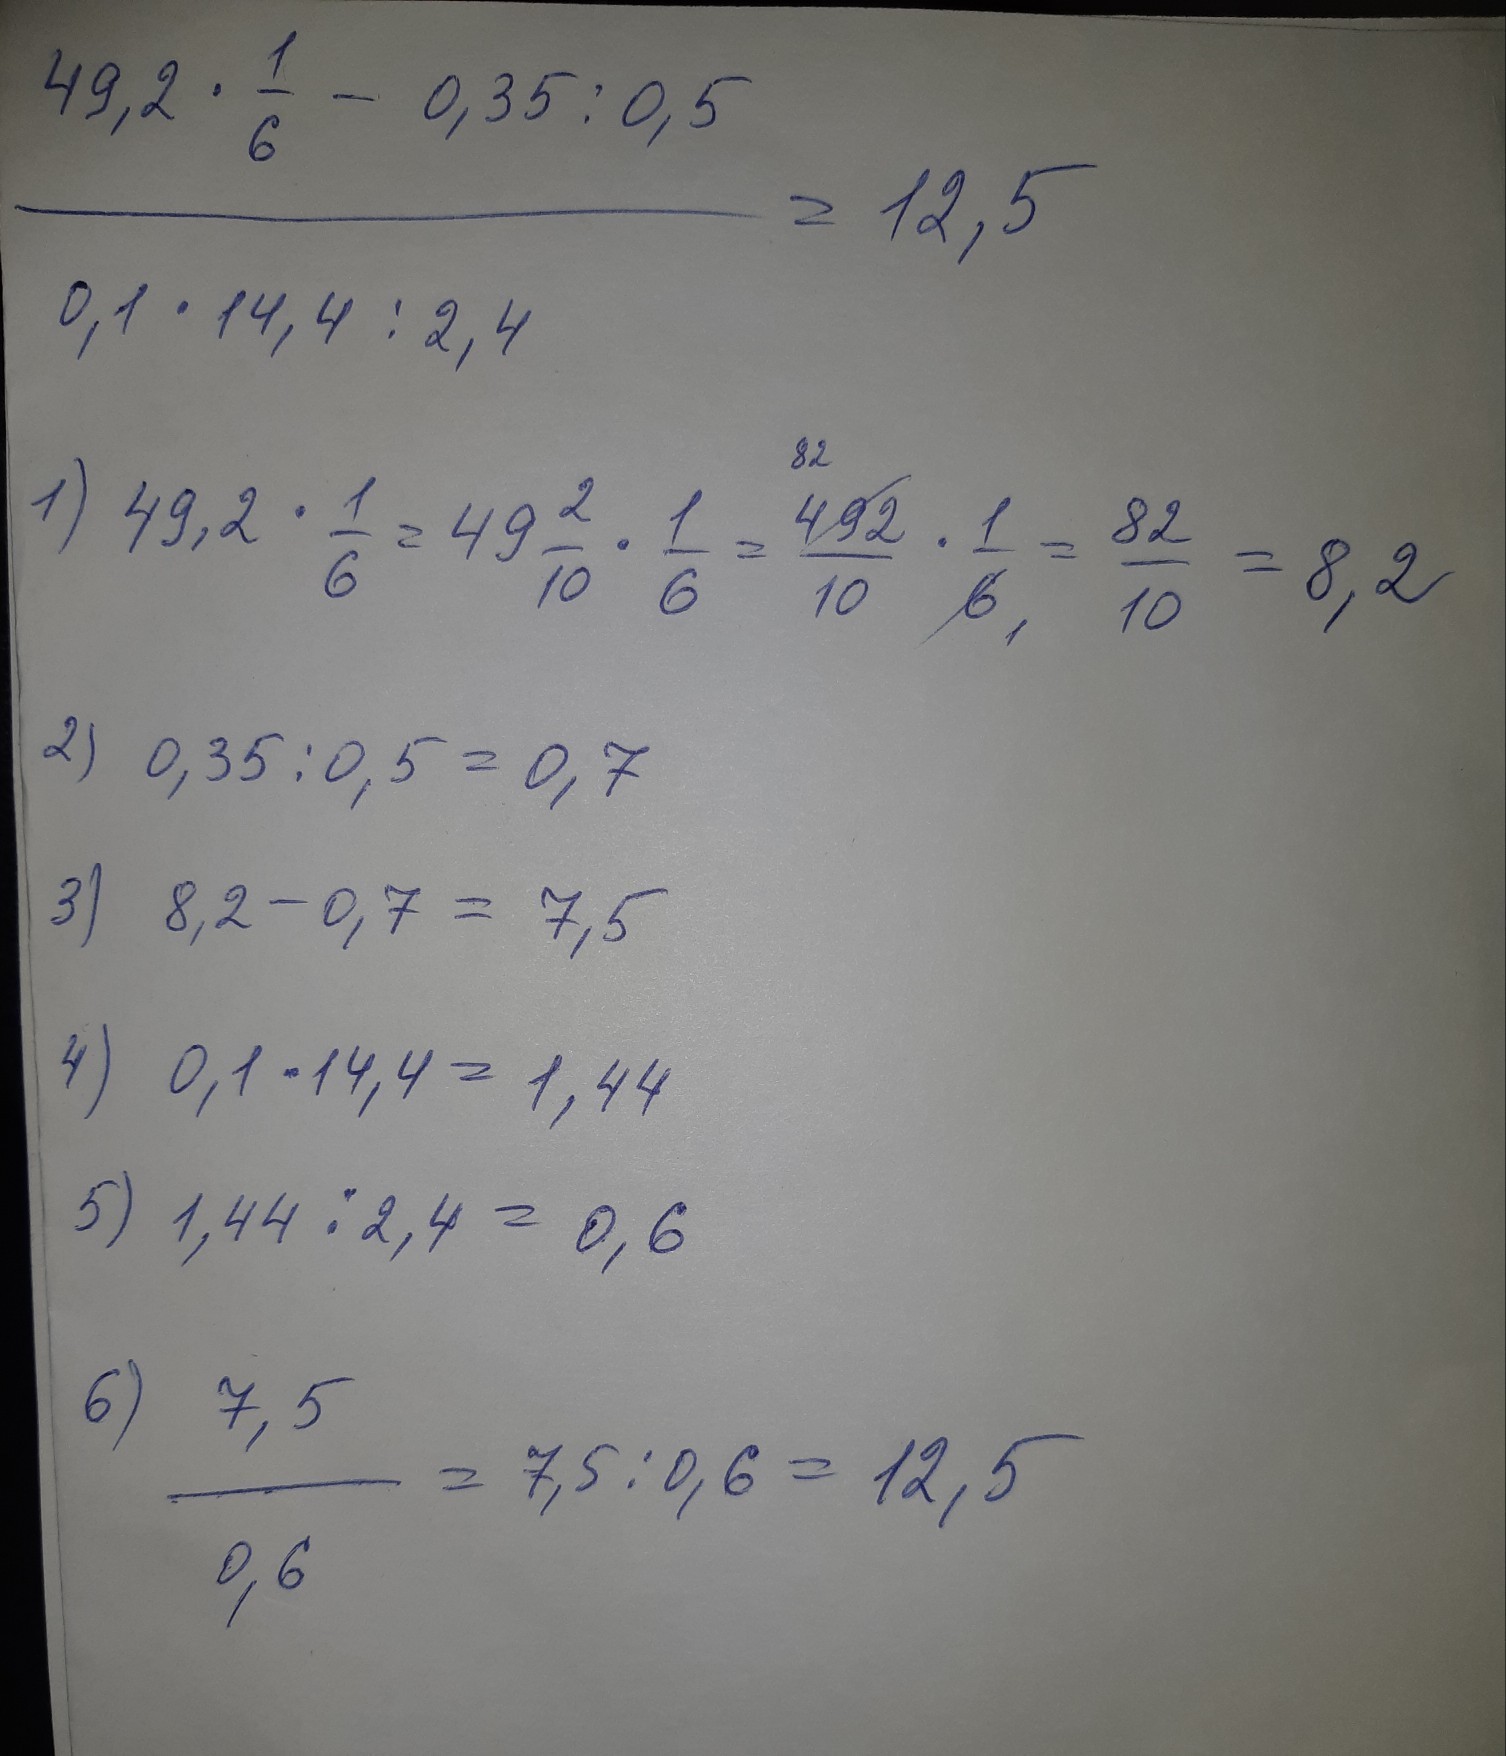 49,2 · 1/6 − 0,35 : 0,5
= 12,5
0,1 · 14,4 : 2,4
82
1) 49,2 · 1/6 = 49 2/10 · 1/6 = 492/10 · 1/6 1 = 82/10 = 8,2
2) 0,35 : 0,5 = 0,7
3) 8,2 − 0,7 = 7,5
4) 0,1 · 14,4 = 1,44
5) 1,44 : 2,4 = 0,6
6) 7,5/0,6 = 7,5 : 0,6 = 12,5